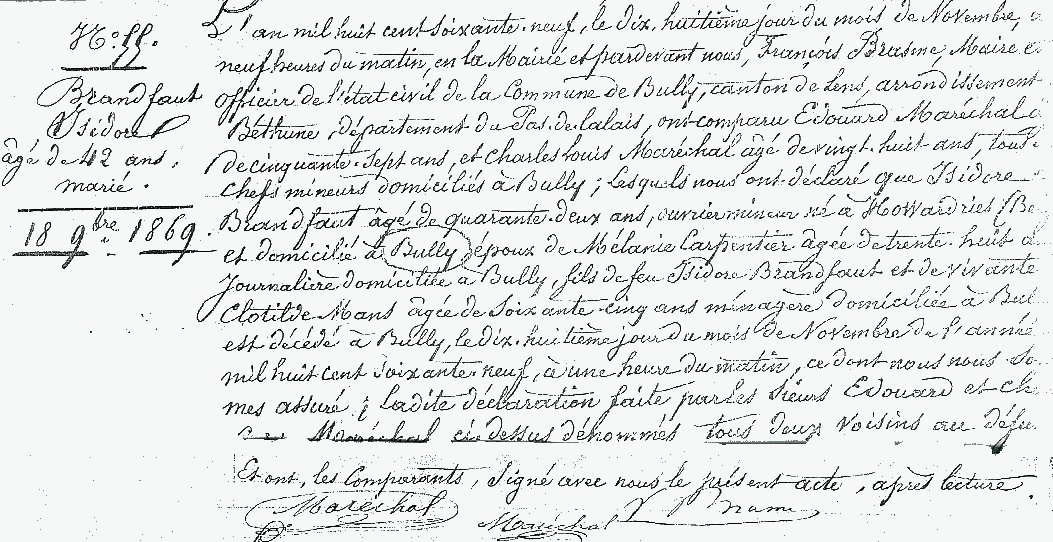 N.° 55.
Brandfaut
Isidore
âgé de 42 ans,
marié.
18 9bre 1869.
L'an mil huit cent soixante-neuf, le dix-huitième jour du mois de Novembre, à
neuf heures du matin, en la Mairie et pardevant nous, François Brasme, Maire, e
officier de l'état civil de la Commune de Bully, canton de Lens, arrondissement
Béthune, département du Pas-de-Calais, ont comparu Edouard Maréchal â
de cinquante-sept ans, et Charles Louis Maréchal âgé de vingt-huit ans, tous
chefs mineurs domiciliés à Bully ; lesquels nous ont déclaré que Isidore
Brandfaut âgé de quarante-deux ans, ouvrier mineur né à Howardries (Be
et domicilié à Bully époux de Mélanie Carpentier âgée de trente-huit a
journalière domiciliée à Bully, fils de feu Isidore Brandfaut et de vivante
Clotilde Mans âgée de soixante-cinq ans ménagère domiciliée à Bul
est décédé à Bully, le dix-huitième jour du mois de Novembre de l'année
mil huit cent soixante-neuf, à une heure du matin, ce dont nous nous so
mes assuré ; ladite déclaration faite par les sieurs Edouard et Cha
Maréchal ci-dessus dénommés tous deux voisins au défu
Et ont, les comparants, signé avec nous le présent acte, après lecture.
Maréchal
Maréchal